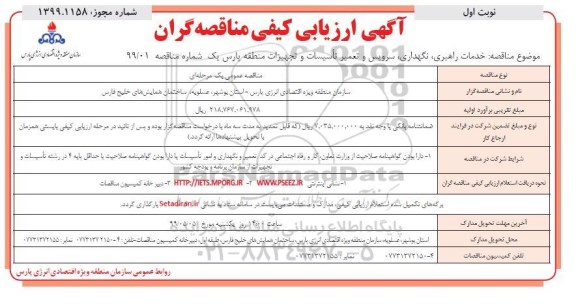 نوبت اول
شماره مجوز: ۱۳۹۹.۱۱۵۸
آگهی ارزیابی کیفی مناقصه‌گران
موضوع مناقصه: خدمات راهبری، نگهداری، سرویس و تعمیر تأسیسات و تجهیزات منطقه پارس یک شماره مناقصه ۹۹/۰۱
نوع مناقصه
مناقصه عمومی یک مرحله‌ای
نام و نشانی مناقصه‌گزار
سازمان منطقه ویژه اقتصادی انرژی پارس - استان بوشهر، عسلویه، ساختمان همایش‌های خلیج فارس
مبلغ تقریبی برآورد اولیه
۲۱۸,۷۶۷,۰۶۱,۹۷۸ ریال
نوع و مبلغ تضمین شرکت در فرایند ارجاع کار
ضمانتنامه بانکی یا وجه نقد به ۷,۰۳۵,۰۰۰,۰۰۰ ریال (که قابل تمدید به مدت سه ماه با درخواست مناقصه‌گزار بوده و پس از تائید در مرحله ارزیابی کیفی بایستی همزمان با تحویل پیشنهادها ارائه گردد.)
شرایط شرکت در مناقصه
۱- دارا بودن گواهینامه صلاحیت از وزارت تعاون، کار و رفاه اجتماعی در کد تعمیر و نگهداری و امور تأسیسات یا دارا بودن گواهینامه صلاحیت با حداقل پایه ۴ در رشته تأسیسات و تجهیزات از سازمان برنامه و بودجه کشور
نحوه دریافت استعلام ارزیابی کیفی مناقصه گران
۱- نشانی اینترنتی WWW.PSEEZ.IR ۲- HTTP://IETS.MPORG.IR ۳- دبیرخانه کمیسیون مناقصات
برگه‌های تکمیل شده استعلام ارزیابی کیفی، مدارک و مستندات می‌بایست در سامانه ستاد به نشانی Setadiran.ir بارگذاری گردد.
آخرین مهلت تحویل مدارک
ساعت ۱۴:۰۰ روز یکشنبه مورخ ۹۹/۰۵/۰۵
محل تحویل مدارک
استان بوشهر، عسلویه، سازمان منطقه ویژه اقتصادی انرژی پارس، ساختمان همایش‌های خلیج فارس، طبقه اول، دبیرخانه کمیسیون مناقصات-تلفن: ۴-۰۷۷۳۱۳۷۲۱۵۰ نمابر: ۰۷۷۳۱۳۷۲۱۵۵
تلفن کمیسیون مناقصات
۰۷۷۳۱۳۷۲۱۵۰-۴ نمابر: ۰۷۷۳۱۳۷۲۱۵۵
روابط عمومی سازمان منطقه ویژه اقتصادی انرژی پارس